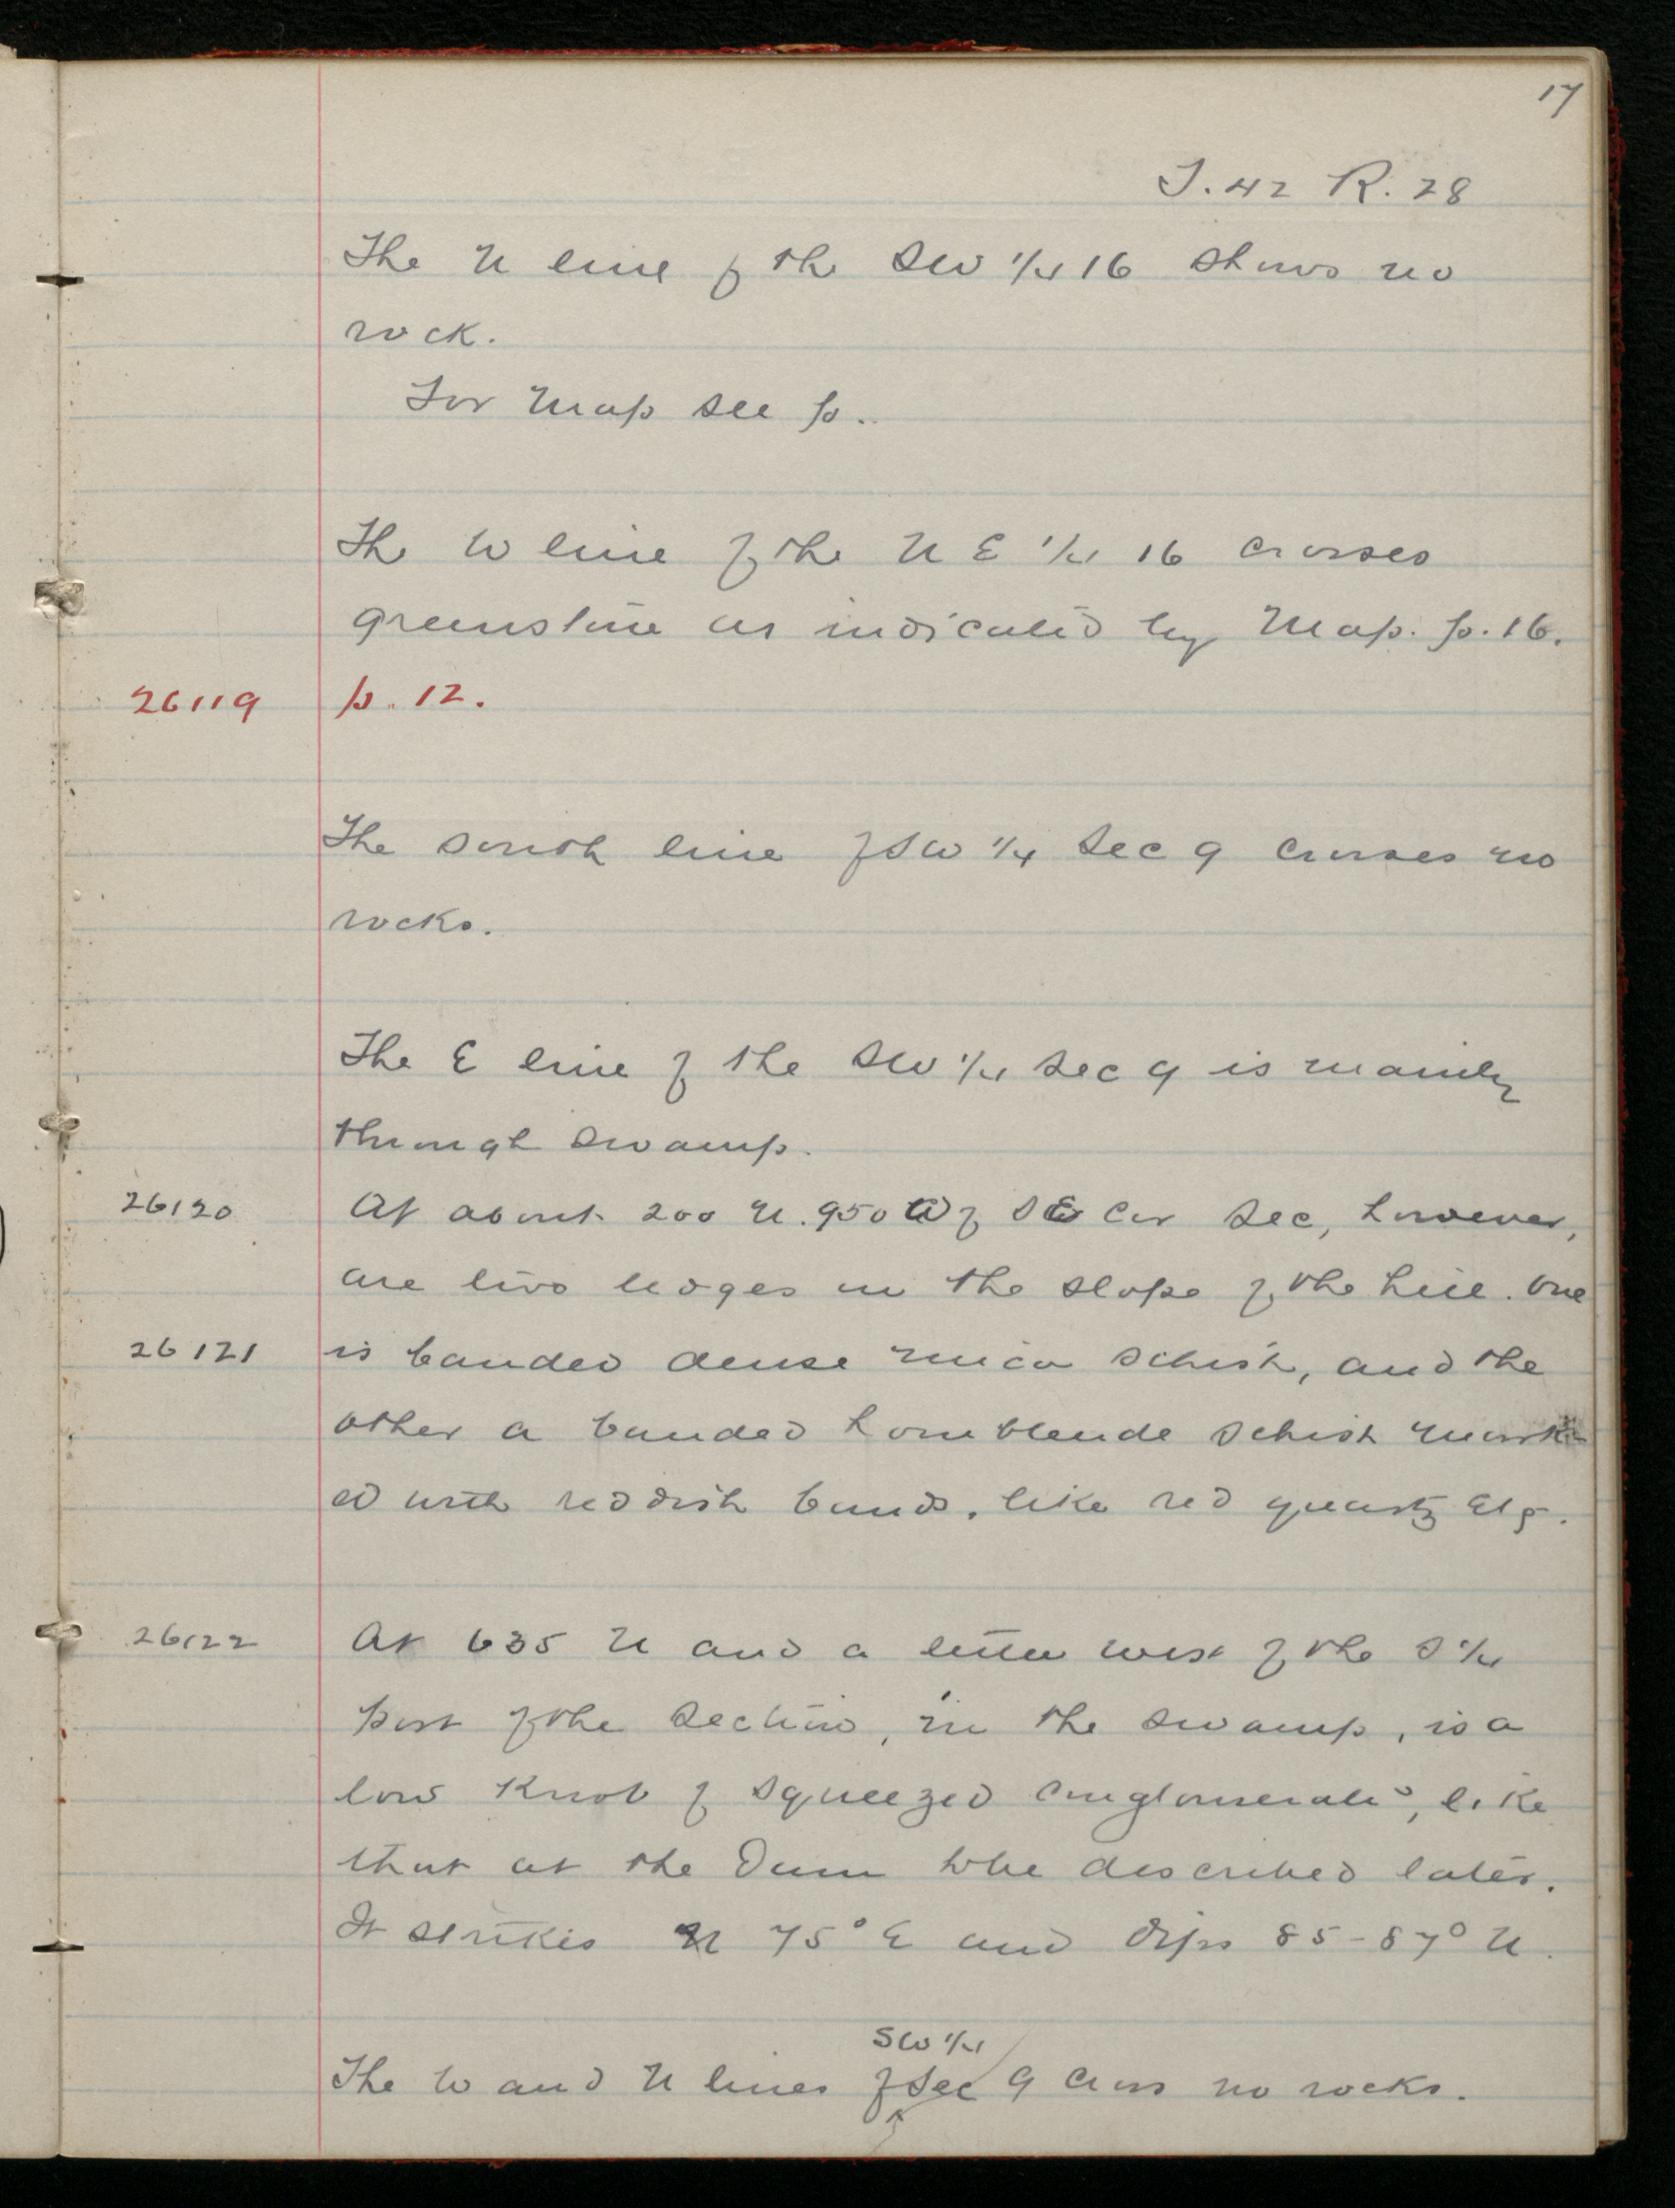 17
T. 42 R. 28
The N line of the SW 1/4 16 shows no
rock.
For Map see p..
The W line of the N E 1/4 16 crosses
greenstone as indicated by Map. p. 16.
26119 p. 12.
The south line of SW 1/4 Sec 9 crosses no
rocks.
The E line of the SW 1/4 Sec 9 is mainly
through swamp.
26120 At about 200 N. 950 W of SE Cor Sec, however,
are two ledges in the slope of the hill. One
26121 is banded dense mica schist, and the
other a banded hornblende schist mark
ed with reddish bands, like red quartz etc.
26122 At 635 N and a little west of the S 1/4
post of the section, in the swamp, is a
low knob of squeezed conglomerate, like
that at the Dam to be described later.
It strikes N 75° E and dips 85-87° N.
SW 1/4
The W and N lines of Sec 9 cross no rocks.